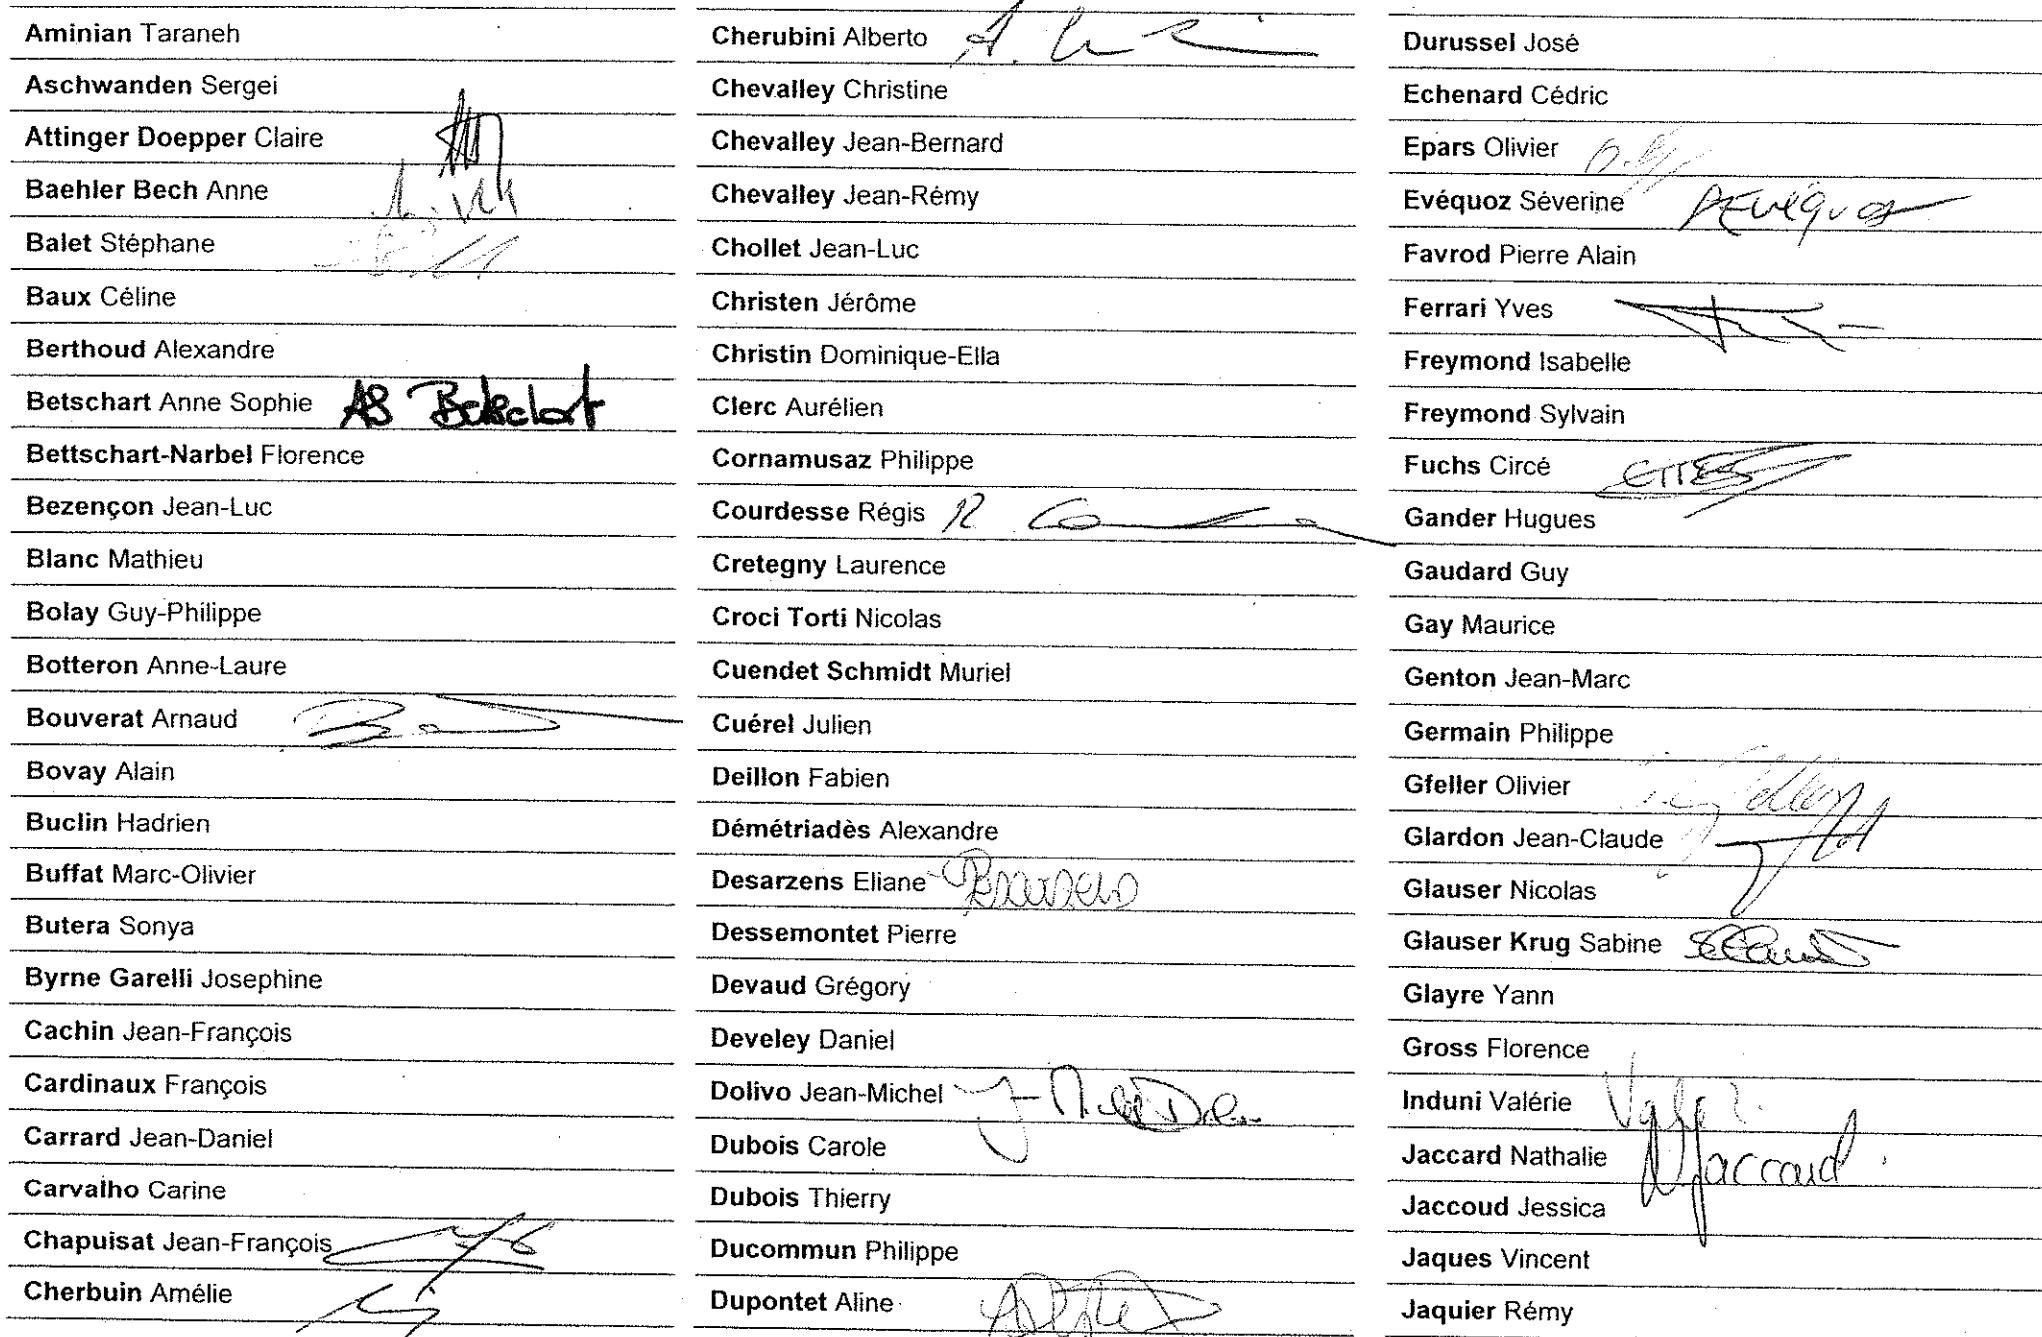 Aminian Taraneh
Aschwanden Sergei
Attinger Doepper Claire
Baehler Bech Anne
Balet Stéphane
Baux Céline
Berthoud Alexandre
Betschart Anne Sophie AS Betschart
Bettschart-Narbel Florence
Bezençon Jean-Luc
Blanc Mathieu
Bolay Guy-Philippe
Botteron Anne-Laure
Bouverat Arnaud
Bovay Alain
Buclin Hadrien
Buffat Marc-Olivier
Butera Sonya
Byrne Garelli Josephine
Cachin Jean-François
Cardinaux François
Carrard Jean-Daniel
Carvalho Carine
Chapuisat Jean-François
Cherbuin Amélie
Cherubini Alberto
Chevalley Christine
Chevalley Jean-Bernard
Chevalley Jean-Rémy
Chollet Jean-Luc
Christen Jérôme
Christin Dominique-Ella
Clerc Aurélien
Cornamusaz Philippe
Courdesse Régis
Cretegny Laurence
Croci Torti Nicolas
Cuendet Schmidt Muriel
Cuérel Julien
Deillon Fabien
Démétriadès Alexandre
Desarzens Eliane
Dessemontet Pierre
Devaud Grégory
Develey Daniel
Dolivo Jean-Michel
Dubois Carole
Dubois Thierry
Ducommun Philippe
Dupontet Aline
Durussel José
Echenard Cédric
Epars Olivier
Evéquoz Séverine
Favrod Pierre Alain
Ferrari Yves
Freymond Isabelle
Freymond Sylvain
Fuchs Circé
Gander Hugues
Gaudard Guy
Gay Maurice
Genton Jean-Marc
Germain Philippe
Gfeller Olivier
Glardon Jean-Claude
Glauser Nicolas
Glauser Krug Sabine
Glayre Yann
Gross Florence
Induni Valérie
Jaccard Nathalie NJaccard
Jaccoud Jessica
Jaques Vincent
Jaquier Rémy